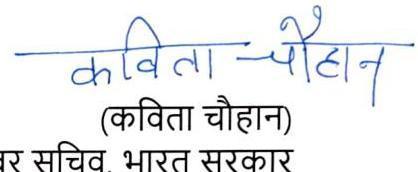 कविता चौहान
(कविता चौहान)
सचिव, भारत सरकार